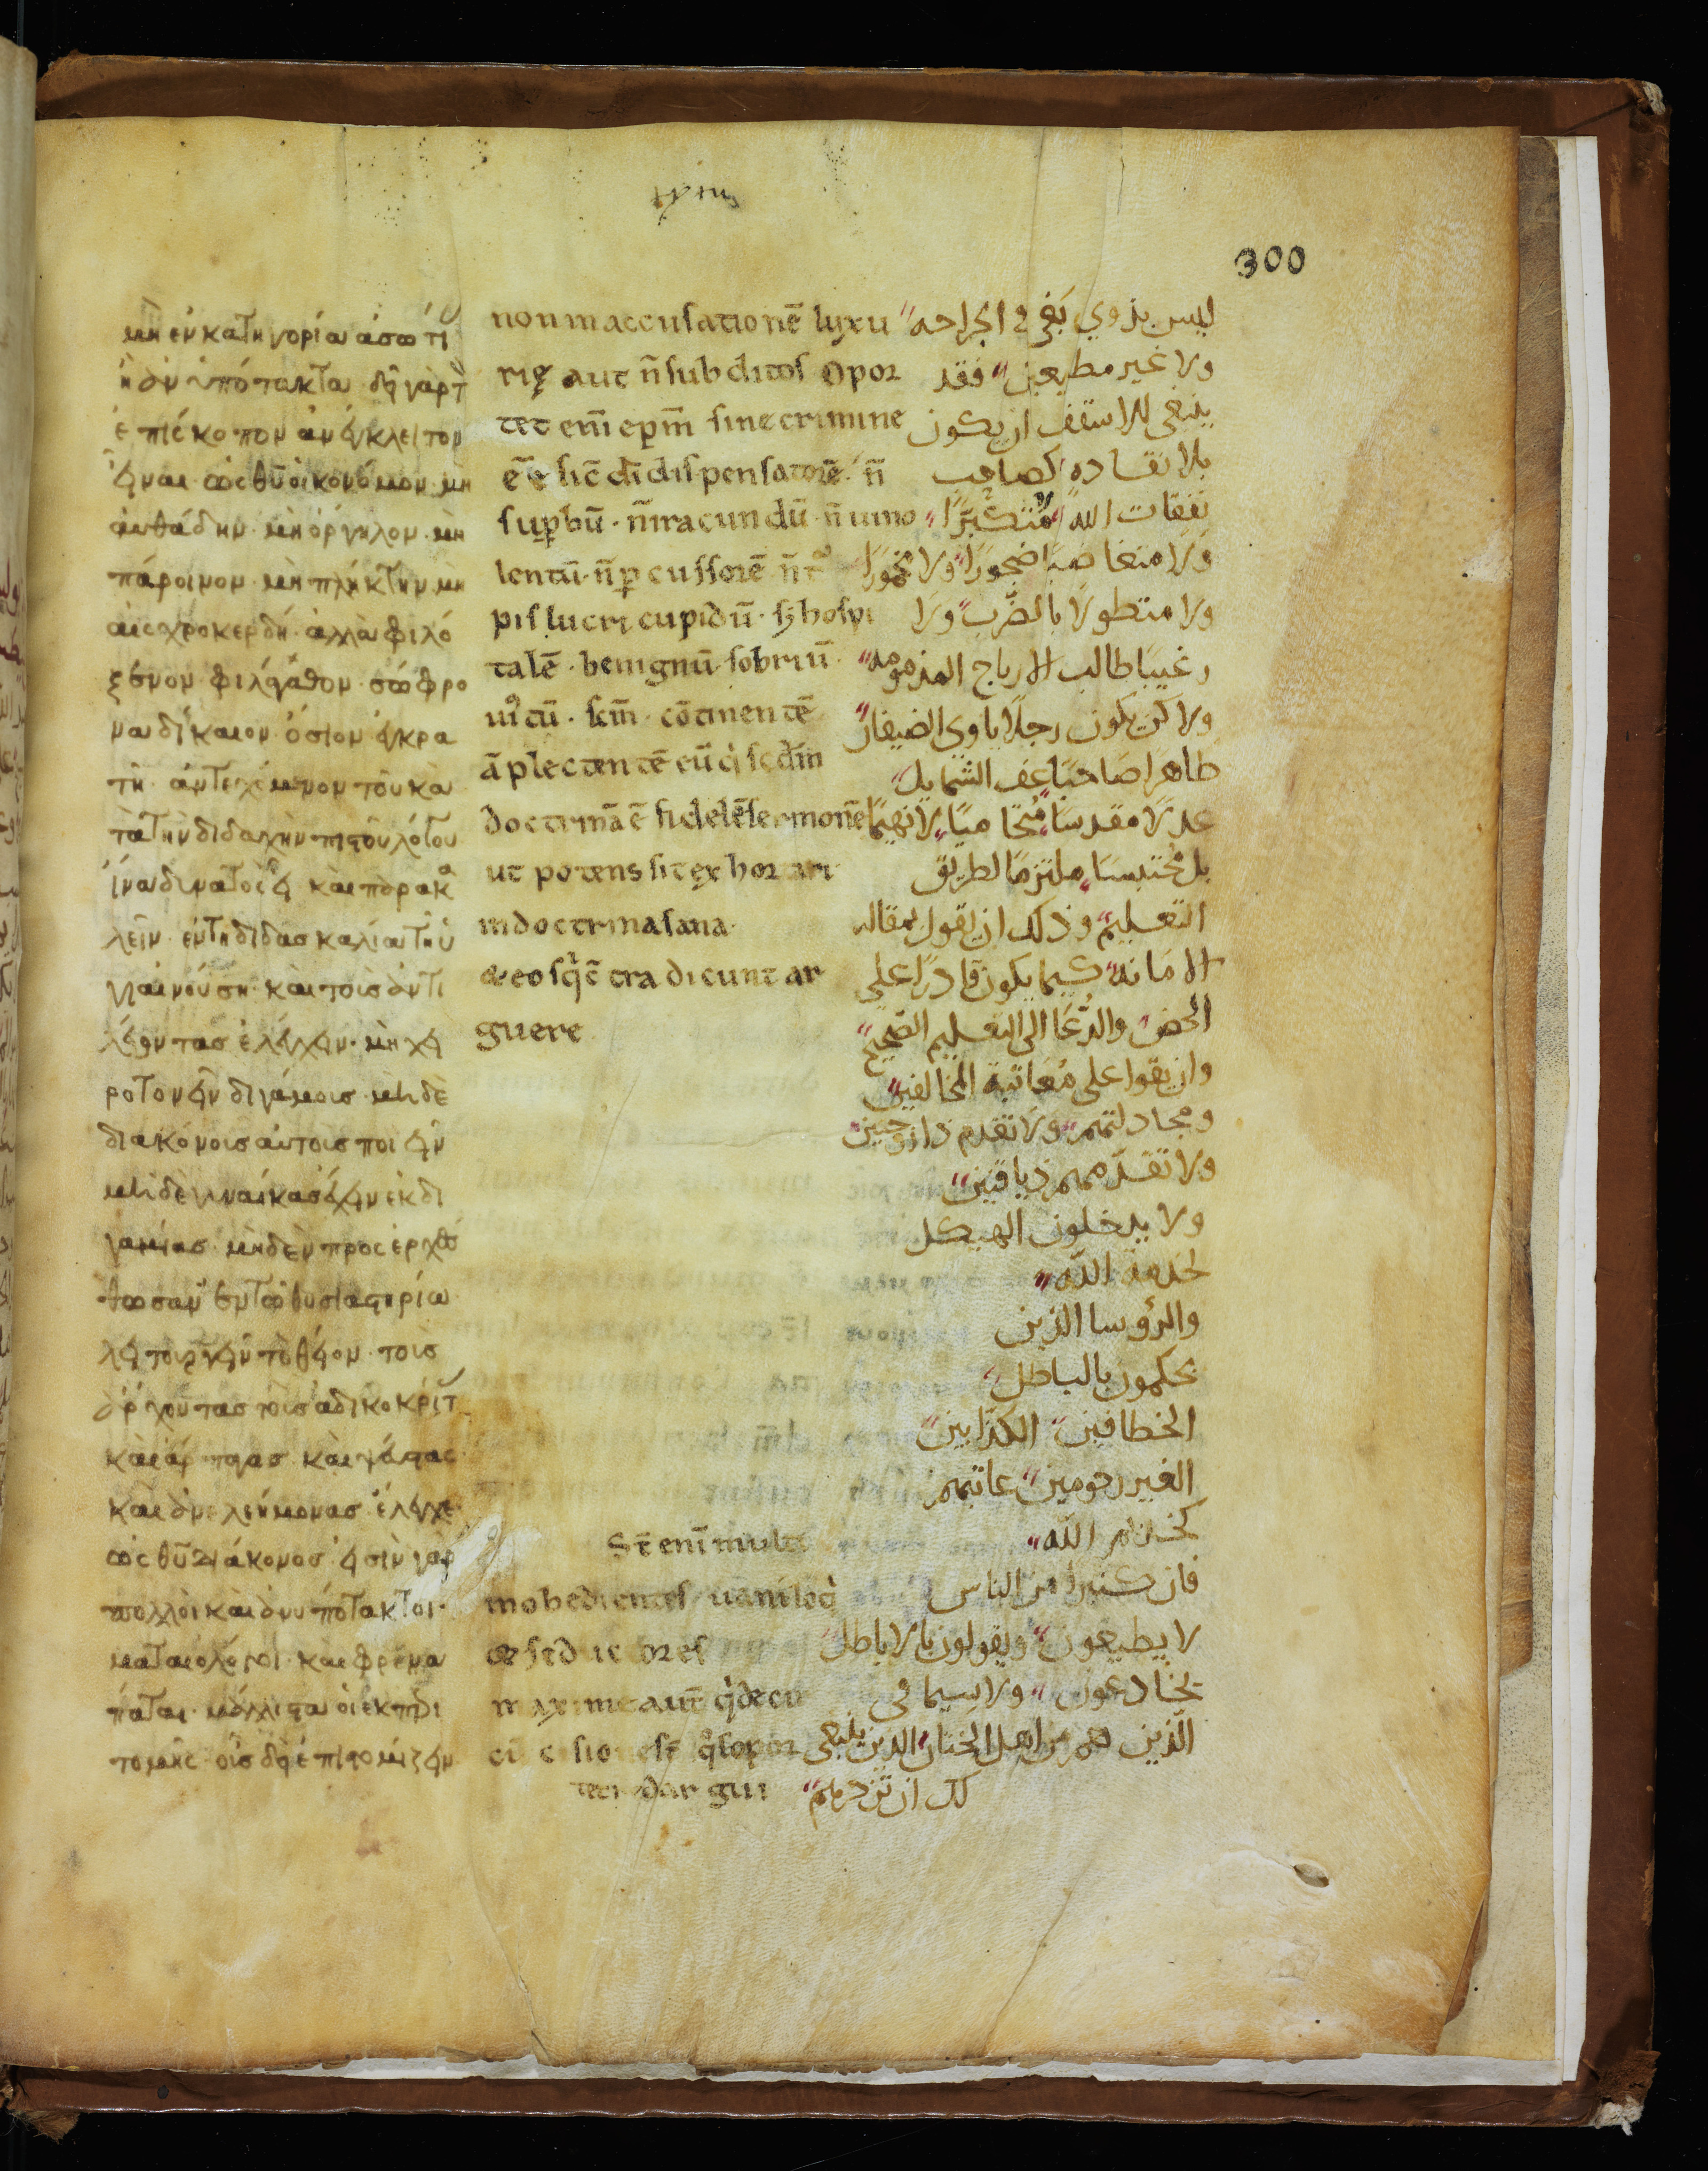 μὴ ἐν κατηγορία ἀσωτί
ἢ ἀνυπότακτα δῆ γὰρ τ
ἐπίσκοπον ἀνέγκλειτον
εἶναι ὡς θῦ οἰκονόμον· μὴ
αὐθάδην· μὴ ὀργηλον· μὴ
πάροινον· μὴ πλήκτην μὴ
αἰσχροκερδῆ· ἀλλὰ φιλό
ξενον φιλάγαθον· σώφρο
να δίκαιον ὅσιον ἐγκρα
τῆ ἀντεχόμενον τοῦ κα
τὰ τὴν διδαχὴν πιστοῦ λόγου
ἵνα δυνατὸς εἶ καὶ παρακα
λεῖν ἐν τῆ διδασκαλία τῆ ὑ
γιαινούση καὶ τοὺς ἀντι
λέγοντας ἐλέγχειν· μὴ χει
ροτονεῖν διγάμοις μηδὲ
διακόνοις αὐτοις ποιεῖν
μηδὲ γυναίκας ἔχειν ἐκ δι
γαμίας· μηδὲν προσερχέ
θωσαν ἐν τῶ θυσιαστηρίω
λειτουργεῖν τὸ θεῖον· τοῖς
ἄρχοντας τοὺς ἀδικοκρίτ
καὶ ἅρπαγας καὶ ψεύστας
καὶ ἀνελεήμονας ἔλεγχε
ὡς θῦ διάκονος εἰσὶν γὰρ
πολλοὶ καὶ ἀνυπότακτοι·
ματαιολόγοι· καὶ φρενα
πάται· μάλλιστα οἱ ἐκ περι
τομῆς· οὓς δεῖ ἐπιστομίζειν
non in accusationē luxu
rię aut n̄ subditos Opor
tet enī ep̄m sine crimine
eē sic̄ dī dispensatorē· n̄
sup̄bū· n̄ iracundū· n̄ uino
lentū· n̄ p̄cussorē n̄ tᵒ
pis lucri cupidū· sȝ hospi
talē· benignū· sobriū·
iustū· sc̄m· cōtinentē
āplectentē eū qi sc̄dm
doctrinā ē fidelē sermonē
ut potens sit exhortari
in doctrina sana·
& eos qi cōtradicunt ar
guere
St̄ enī multi
inobedientes uaniloq
& seductores
maxime aut̄ qi de cir
cūcisione st̄ qos opor
tet redargui
300
ليس بذوي بغي في الجراحه
ولا غير مطيعين فقد
ينبغي للاسقف ان يكون
بلا نقاده كصاحب
نفقات الله لا متكبرًا
ولا متغاصبا ضجورًا ولا خمورًا
ولا متطولا بالضرب ولا
رغيبا طالب الارباح المذمومه
ولاكن يكون رجلا ياوي الضيفان
طاهرا صاحبًا عف الشمايل
عدلًا مقدسًا لا نهيمًا
بل محتبسا ملتزمًا لطريق
التعليم وذلك ان يقول بمقاله
الامانه كيما يكون قادرًا على
الحض والدعا الى التعليم الصحيح
وان يقوا على معاتبة المخالفين
ومجادلتهم ولا تقدم ذا زوجتين
ولا تقدمهم ذياقنين
ولا يدخلون الهيكل
لخدمة الله
والرؤسا الذين
يحكمون بالباطل
الخطافين الكذابين
الغير رحومين عاتبهم
كخادم الله
فان كثيرًا من الناس
لا يطيعون ويقولون بالاباطل
يخادعون ولا سيما في
الذين هم من اهل الختان الذين ينبغي
لك ان تزدرمهم